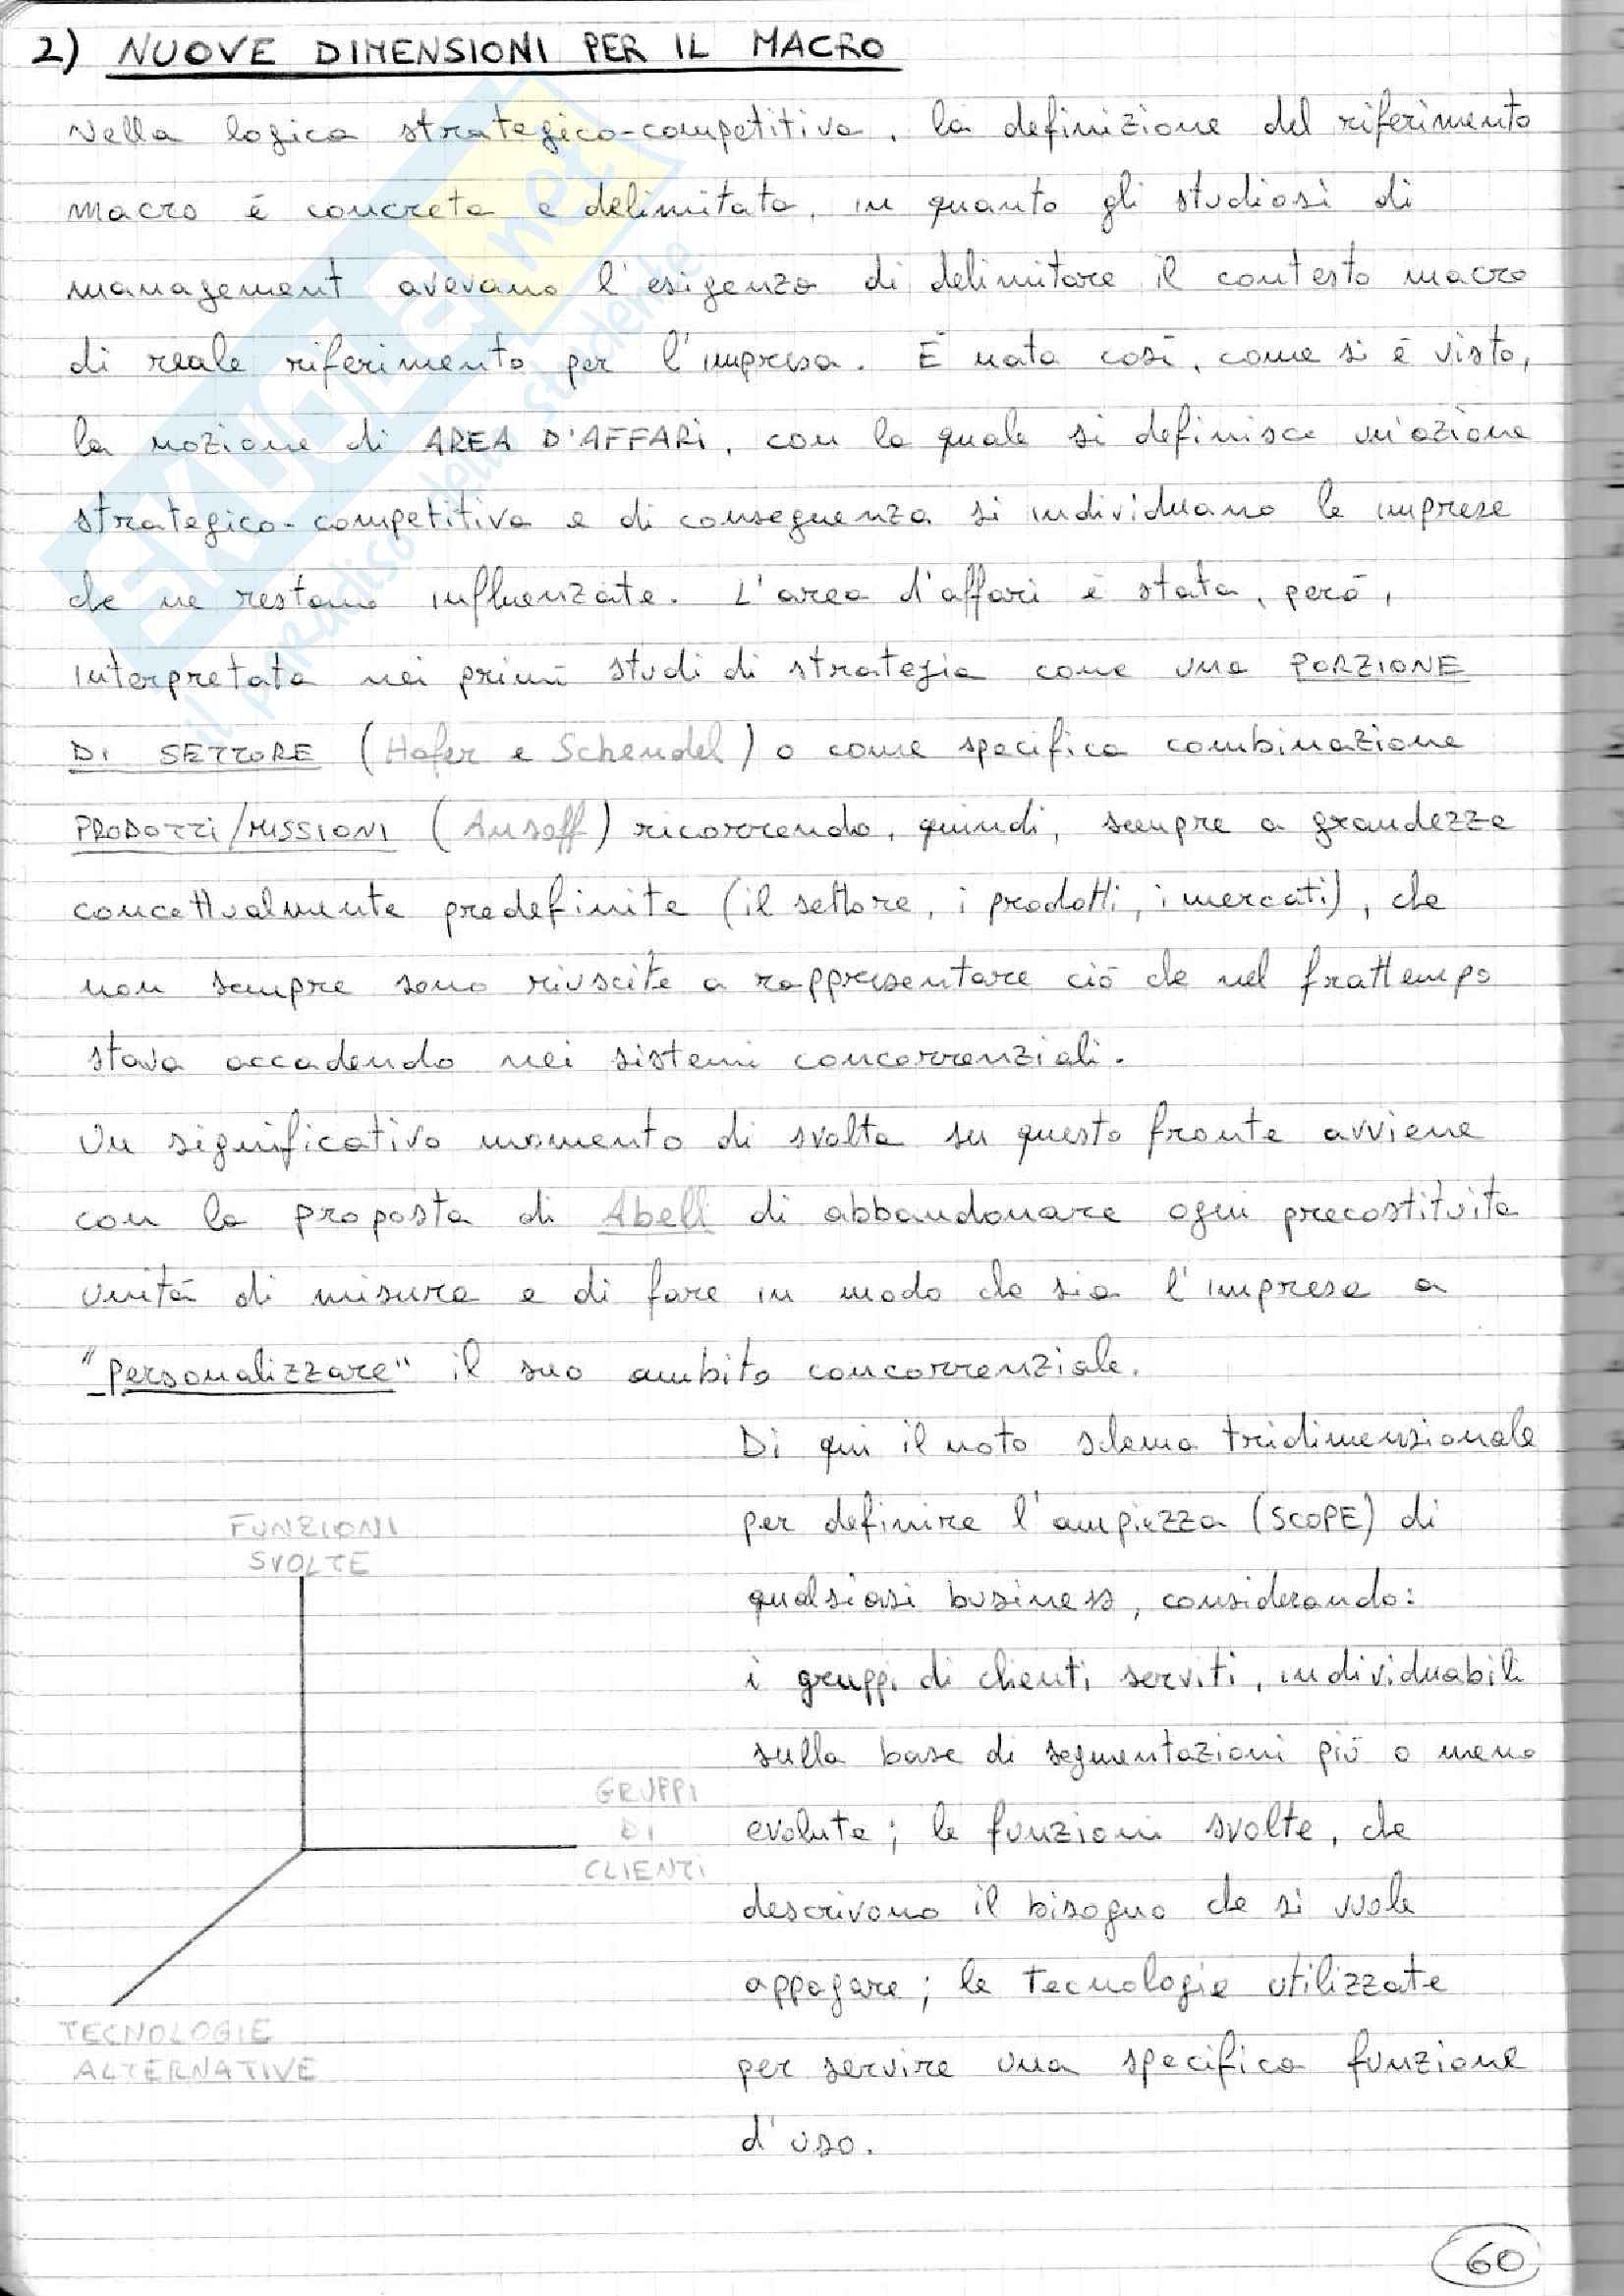 2) NUOVE DIMENSIONI PER IL MACRO
Nella logica strategico-competitiva, la definizione del riferimento
macro è concreta e delimitata, in quanto gli studiosi di
management avevano l'esigenza di delimitare il contesto macro
di reale riferimento per l'impresa. È nata così, come si è visto,
la nozione di AREA D'AFFARI, con la quale si definisce un'azione
strategico-competitiva e di conseguenza si individuano le imprese
che ne restano influenzate. L'area d'affari è stata, però,
interpretata nei primi studi di strategia come una PORZIONE
DI SETTORE (Hofer e Schendel) o come specifica combinazione
PRODOTTI/MISSIONI (Ansoff) ricorrendo, quindi, sempre a grandezze
concettualmente predefinite (il settore, i prodotti, i mercati), che
non sempre sono riuscite a rappresentare ciò che nel frattempo
stava accadendo nei sistemi concorrenziali.
Un significativo momento di svolta su questo fronte avviene
con la proposta di Abell di abbandonare ogni precostituita
unità di misura e di fare in modo che sia l'impresa a
"personalizzare" il suo ambito concorrenziale.
Di qui il noto schema tridimensionale
per definire l'ampiezza (SCOPE) di
qualsiasi business, considerando:
i gruppi di clienti serviti, individuabili
sulla base di segmentazioni più o meno
evolute; le funzioni svolte, che
descrivono il bisogno che si vuole
appagare; le tecnologie utilizzate
per servire una specifica funzione
d'uso.
FUNZIONI
SVOLTE
GRUPPI
DI
CLIENTI
TECNOLOGIE
ALTERNATIVE
60
SKUOLA.net
il paradiso dello studente